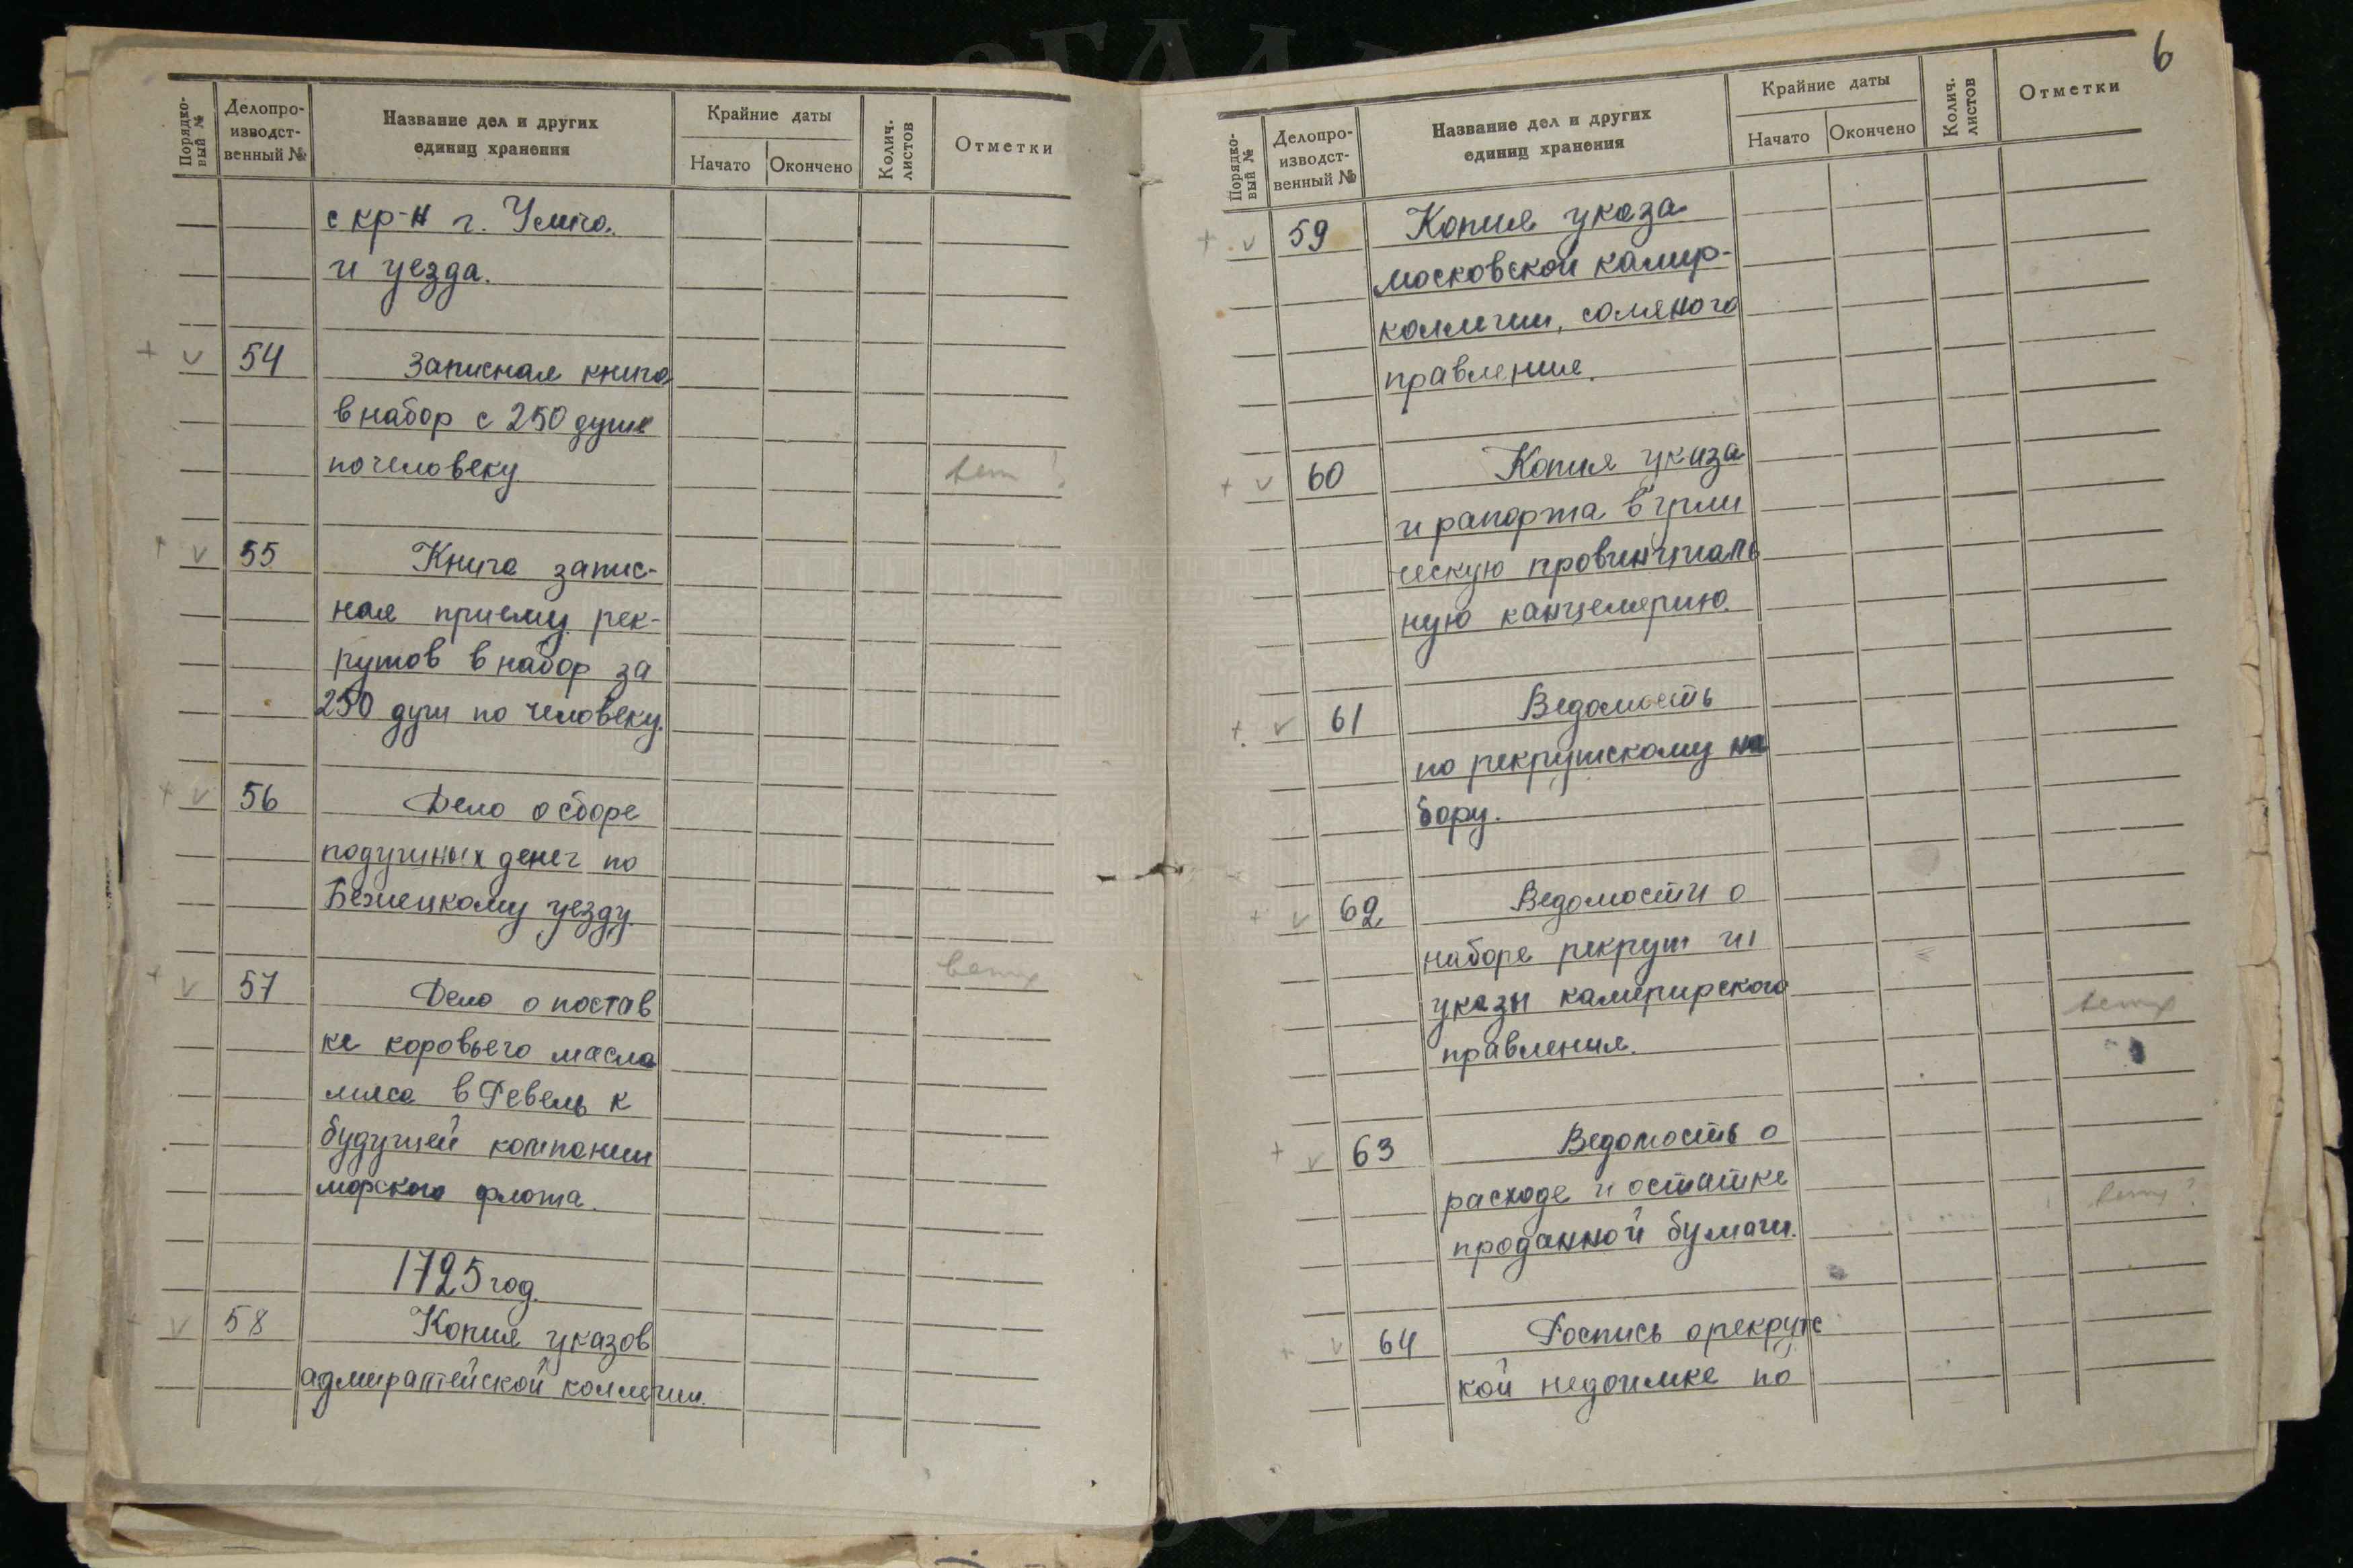 Порядко-
вый №
Делопро-
изводст-
венный №
Название дел и других
единиц хранения
Крайние даты
Начато
Окончено
Колич.
листов
Отметки
с кр-н г. Углича.
и уезда.
54
Записная книга
в набор с 250 душ
по человеку
55
Книга запис-
ная приему рек-
рутов в набор за
250 душ по человеку.
56
Дело о сборе
подушных денег по
Бежецкому уезду
ветх
57
Дело о постав
ке коровьего масла
мяса в Ревель к
будущей компании
морского флота.
1725 год.
58
Копия указов
адмиралтейской коллегии.
6
Порядко-
вый №
Делопро-
изводст-
венный №
Название дел и других
единиц хранения
Крайние даты
Начато
Окончено
Колич.
листов
Отметки
59
Копия указа
московской камер-
коллегии, соляного
правления.
60
Копия указа
и рапорта в угли
ческую провинциаль
ную канцелярию.
61
Ведомость
по рекрутскому на
бору.
62
Ведомости о
наборе рекрут и
указы камерирского
правления.
ветх
63
Ведомость о
расходе и остатке
проданной бумаги.
ветх?
64
Роспись о рекрутс
кой недоимке по